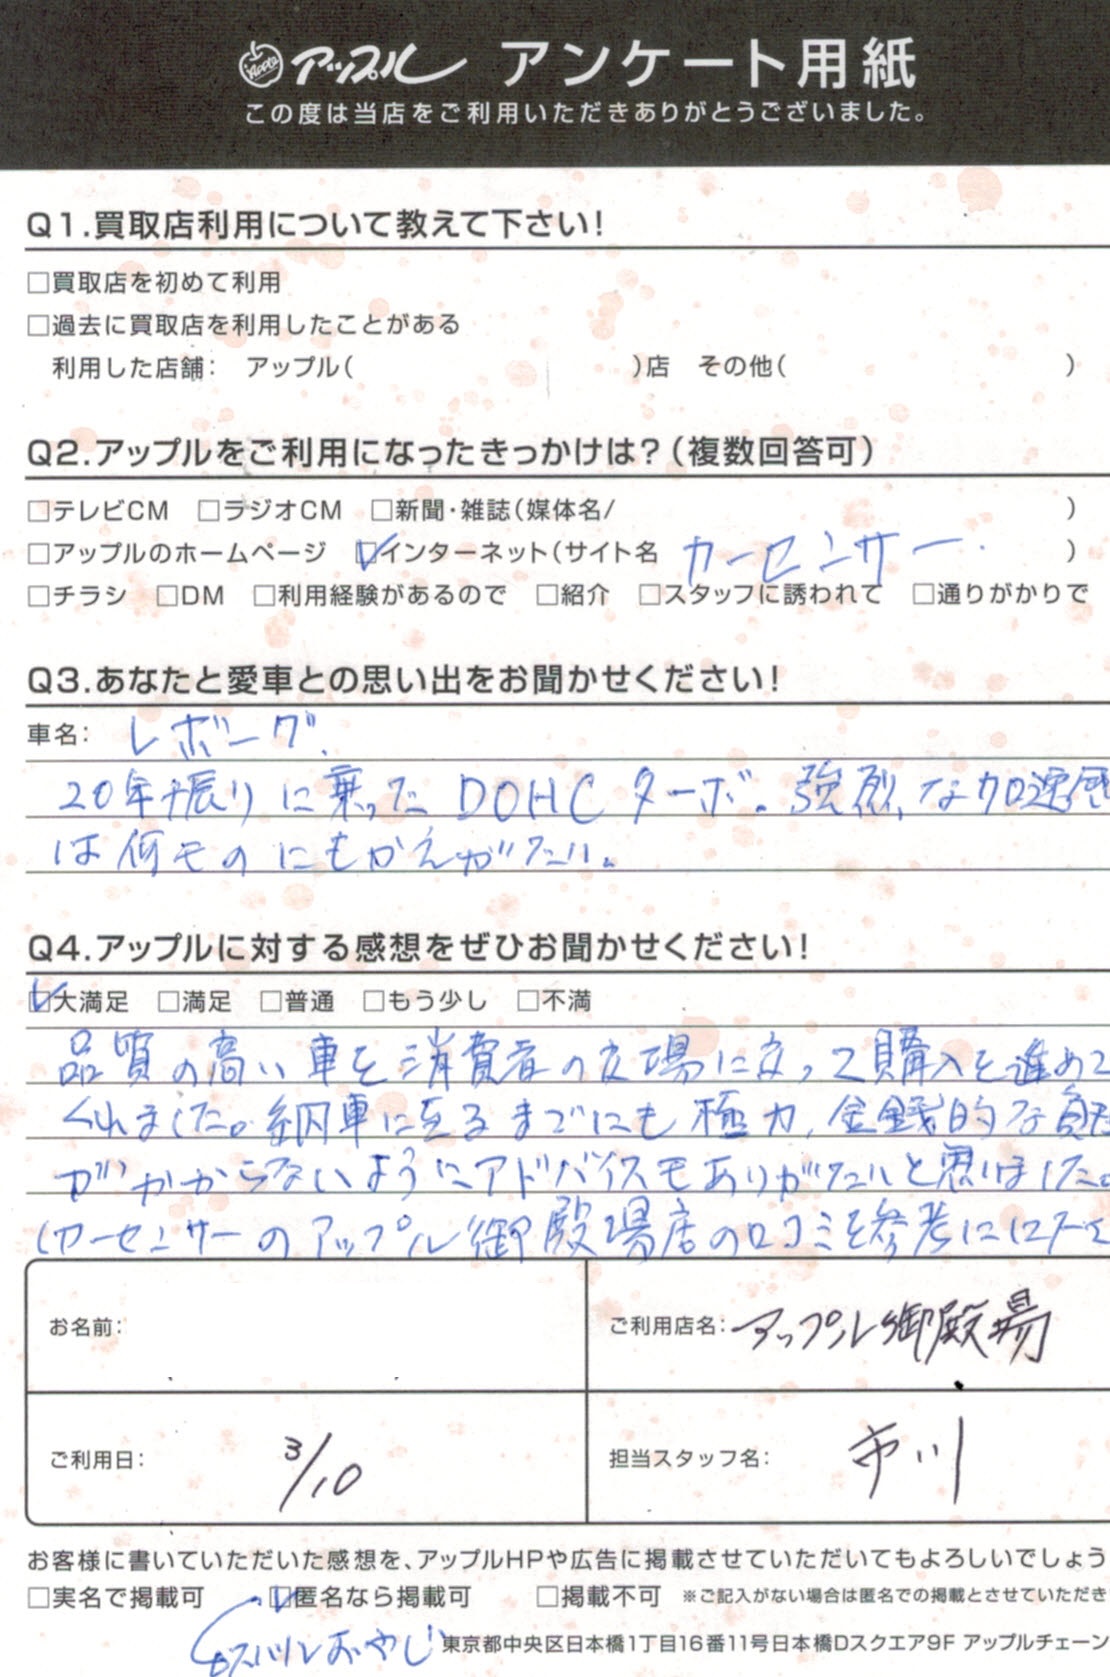 アップル アンケート用紙
この度は当店をご利用いただきありがとうございました。
Q1.買取店利用について教えて下さい!
□買取店を初めて利用
□過去に買取店を利用したことがある
利用した店舗: アップル( )店 その他( )
Q2.アップルをご利用になったきっかけは?(複数回答可)
□テレビCM □ラジオCM □新聞・雑誌(媒体名/ )
□アップルのホームページ ☑インターネット(サイト名 カーセンサー. )
□チラシ □DM □利用経験があるので □紹介 □スタッフに誘われて □通りがかりで
Q3.あなたと愛車との思い出をお聞かせください!
車名: レボーグ.
20年振りに乗ったDOHCターボ。強烈な加速感
は何ものにもかえがたい。
Q4.アップルに対する感想をぜひお聞かせください!
☑大満足 □満足 □普通 □もう少し □不満
品質の高い車を消費者の立場に立って購入を進めて
くれました。納車に至るまでにも極力、金銭的な負
がかからないようにアドバイスもありがたいと思いました。
(カーセンサーのアップル御殿場店の口コミを参考に
お名前:
ご利用店名: アップル御殿場
ご利用日: 3/10
担当スタッフ名: 市川
お客様に書いていただいた感想を、アップルHPや広告に掲載させていただいてもよろしいでしょう
□実名で掲載可 ☑匿名なら掲載可 □掲載不可 ※ご記入がない場合は匿名での掲載とさせていただき
おやじ
東京都中央区日本橋1丁目16番11号日本橋Dスクエア9F アップルチェーン